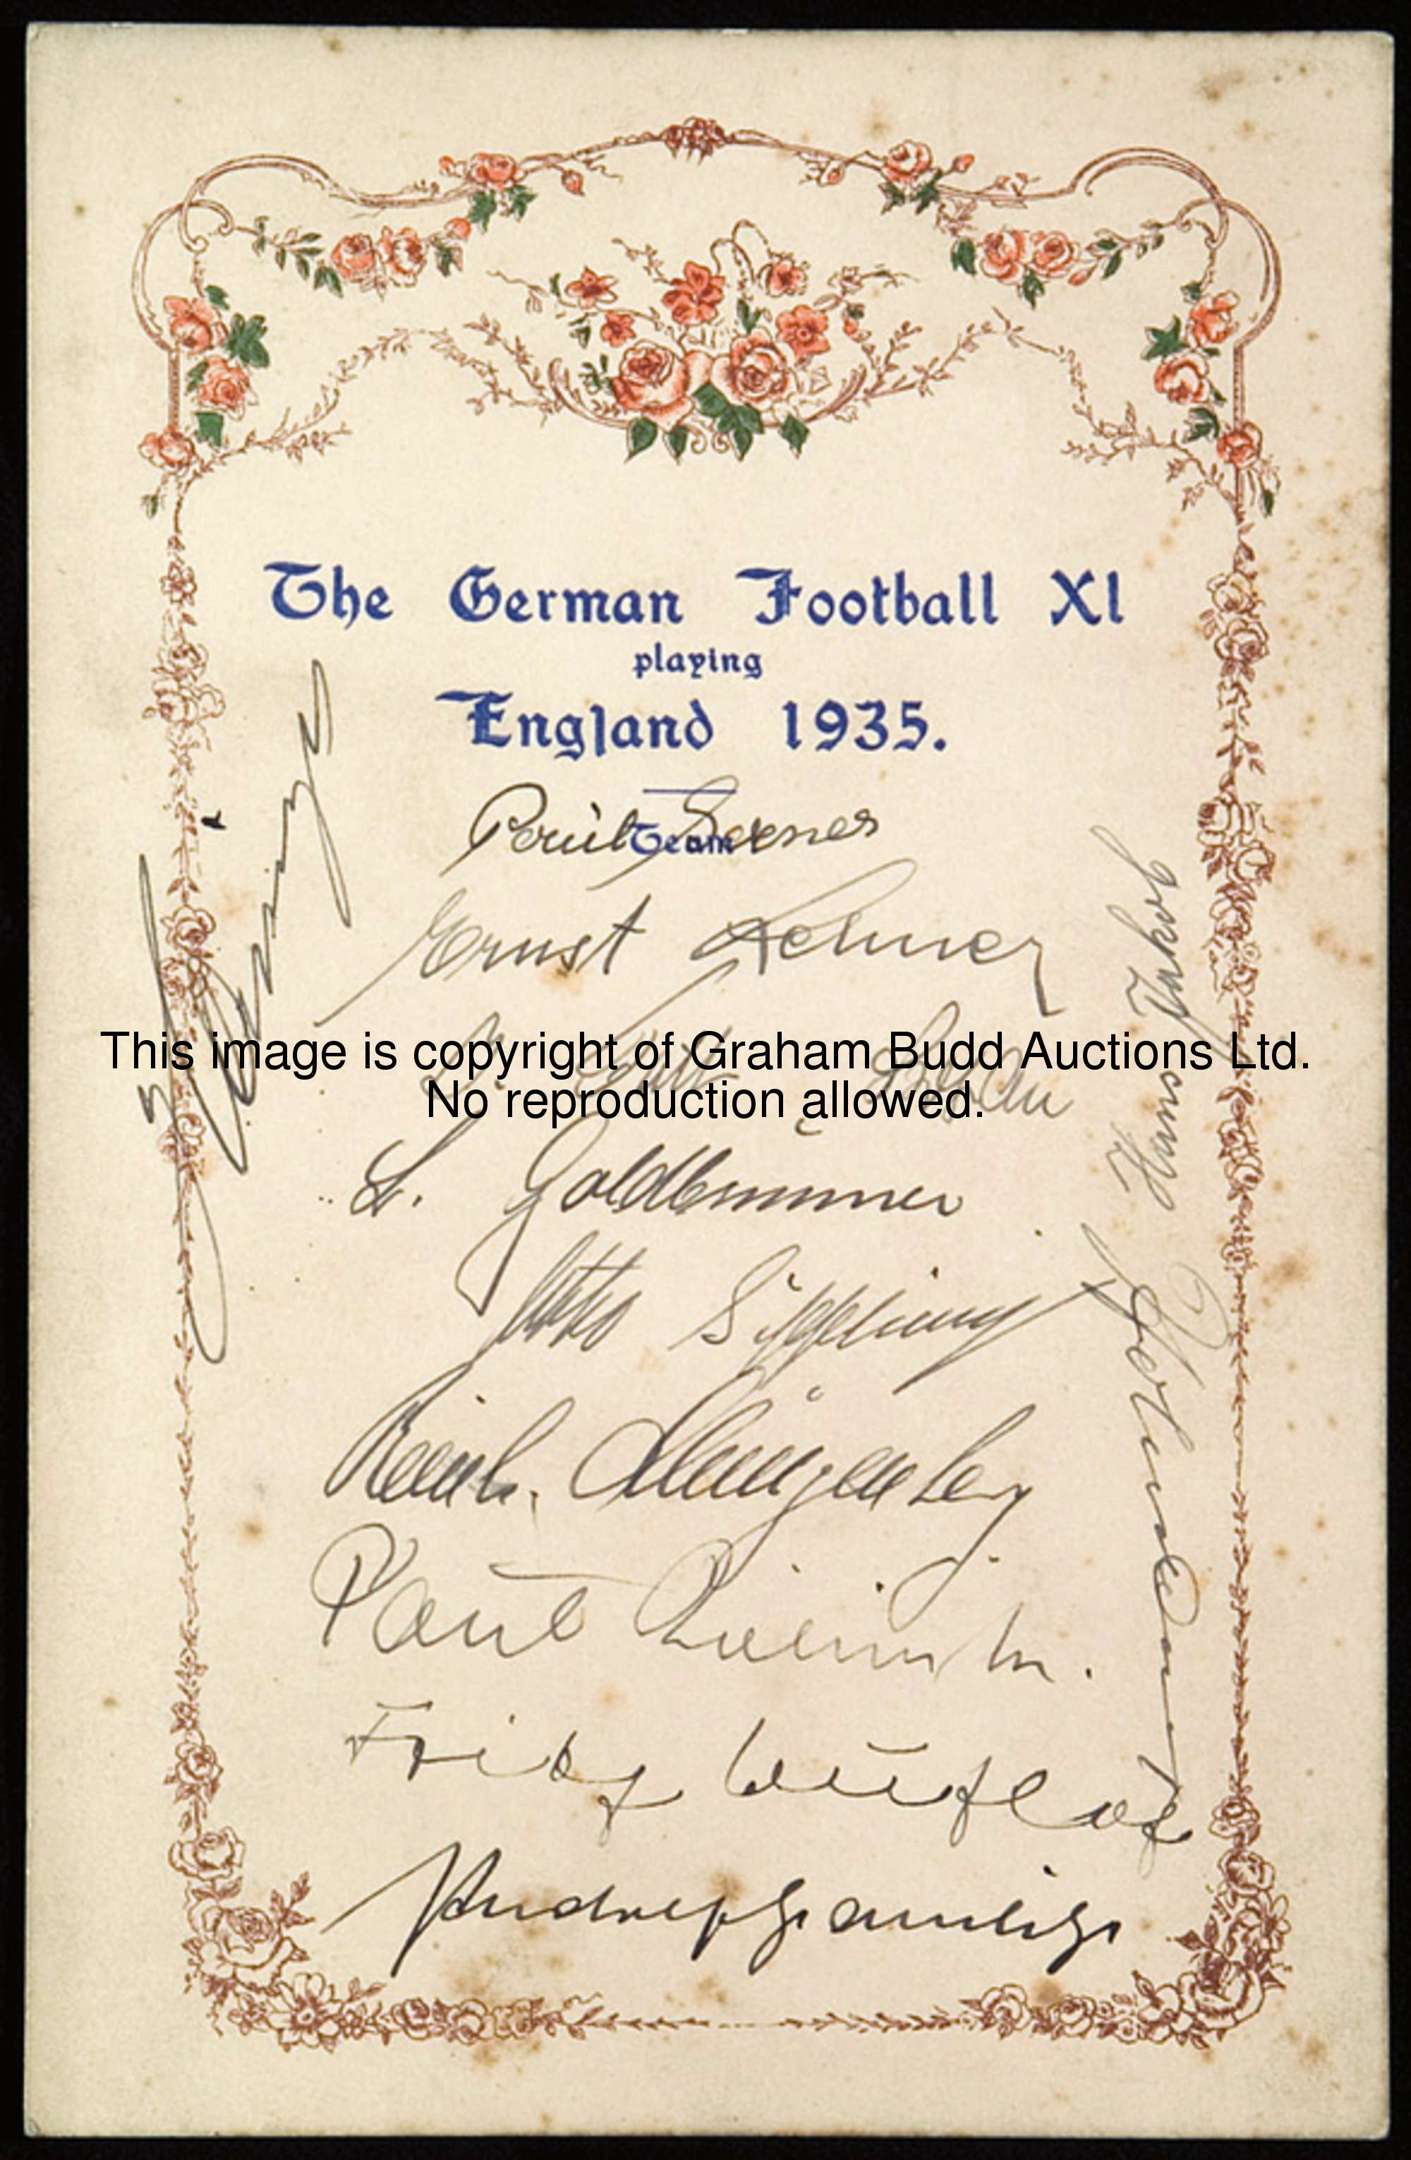 The German Football XI
playing
England 1935.
Team
Paul
Ernst Lehner
This image is copyright of Graham Budd Auctions Ltd.
No reproduction allowed.
L. Goldbrunner
Otto Siffling
Reinh. Münzenberg
Paul Zielinski.
Fritz Buchloh
Rudolf Gramlich
Hans Jakob
Fath